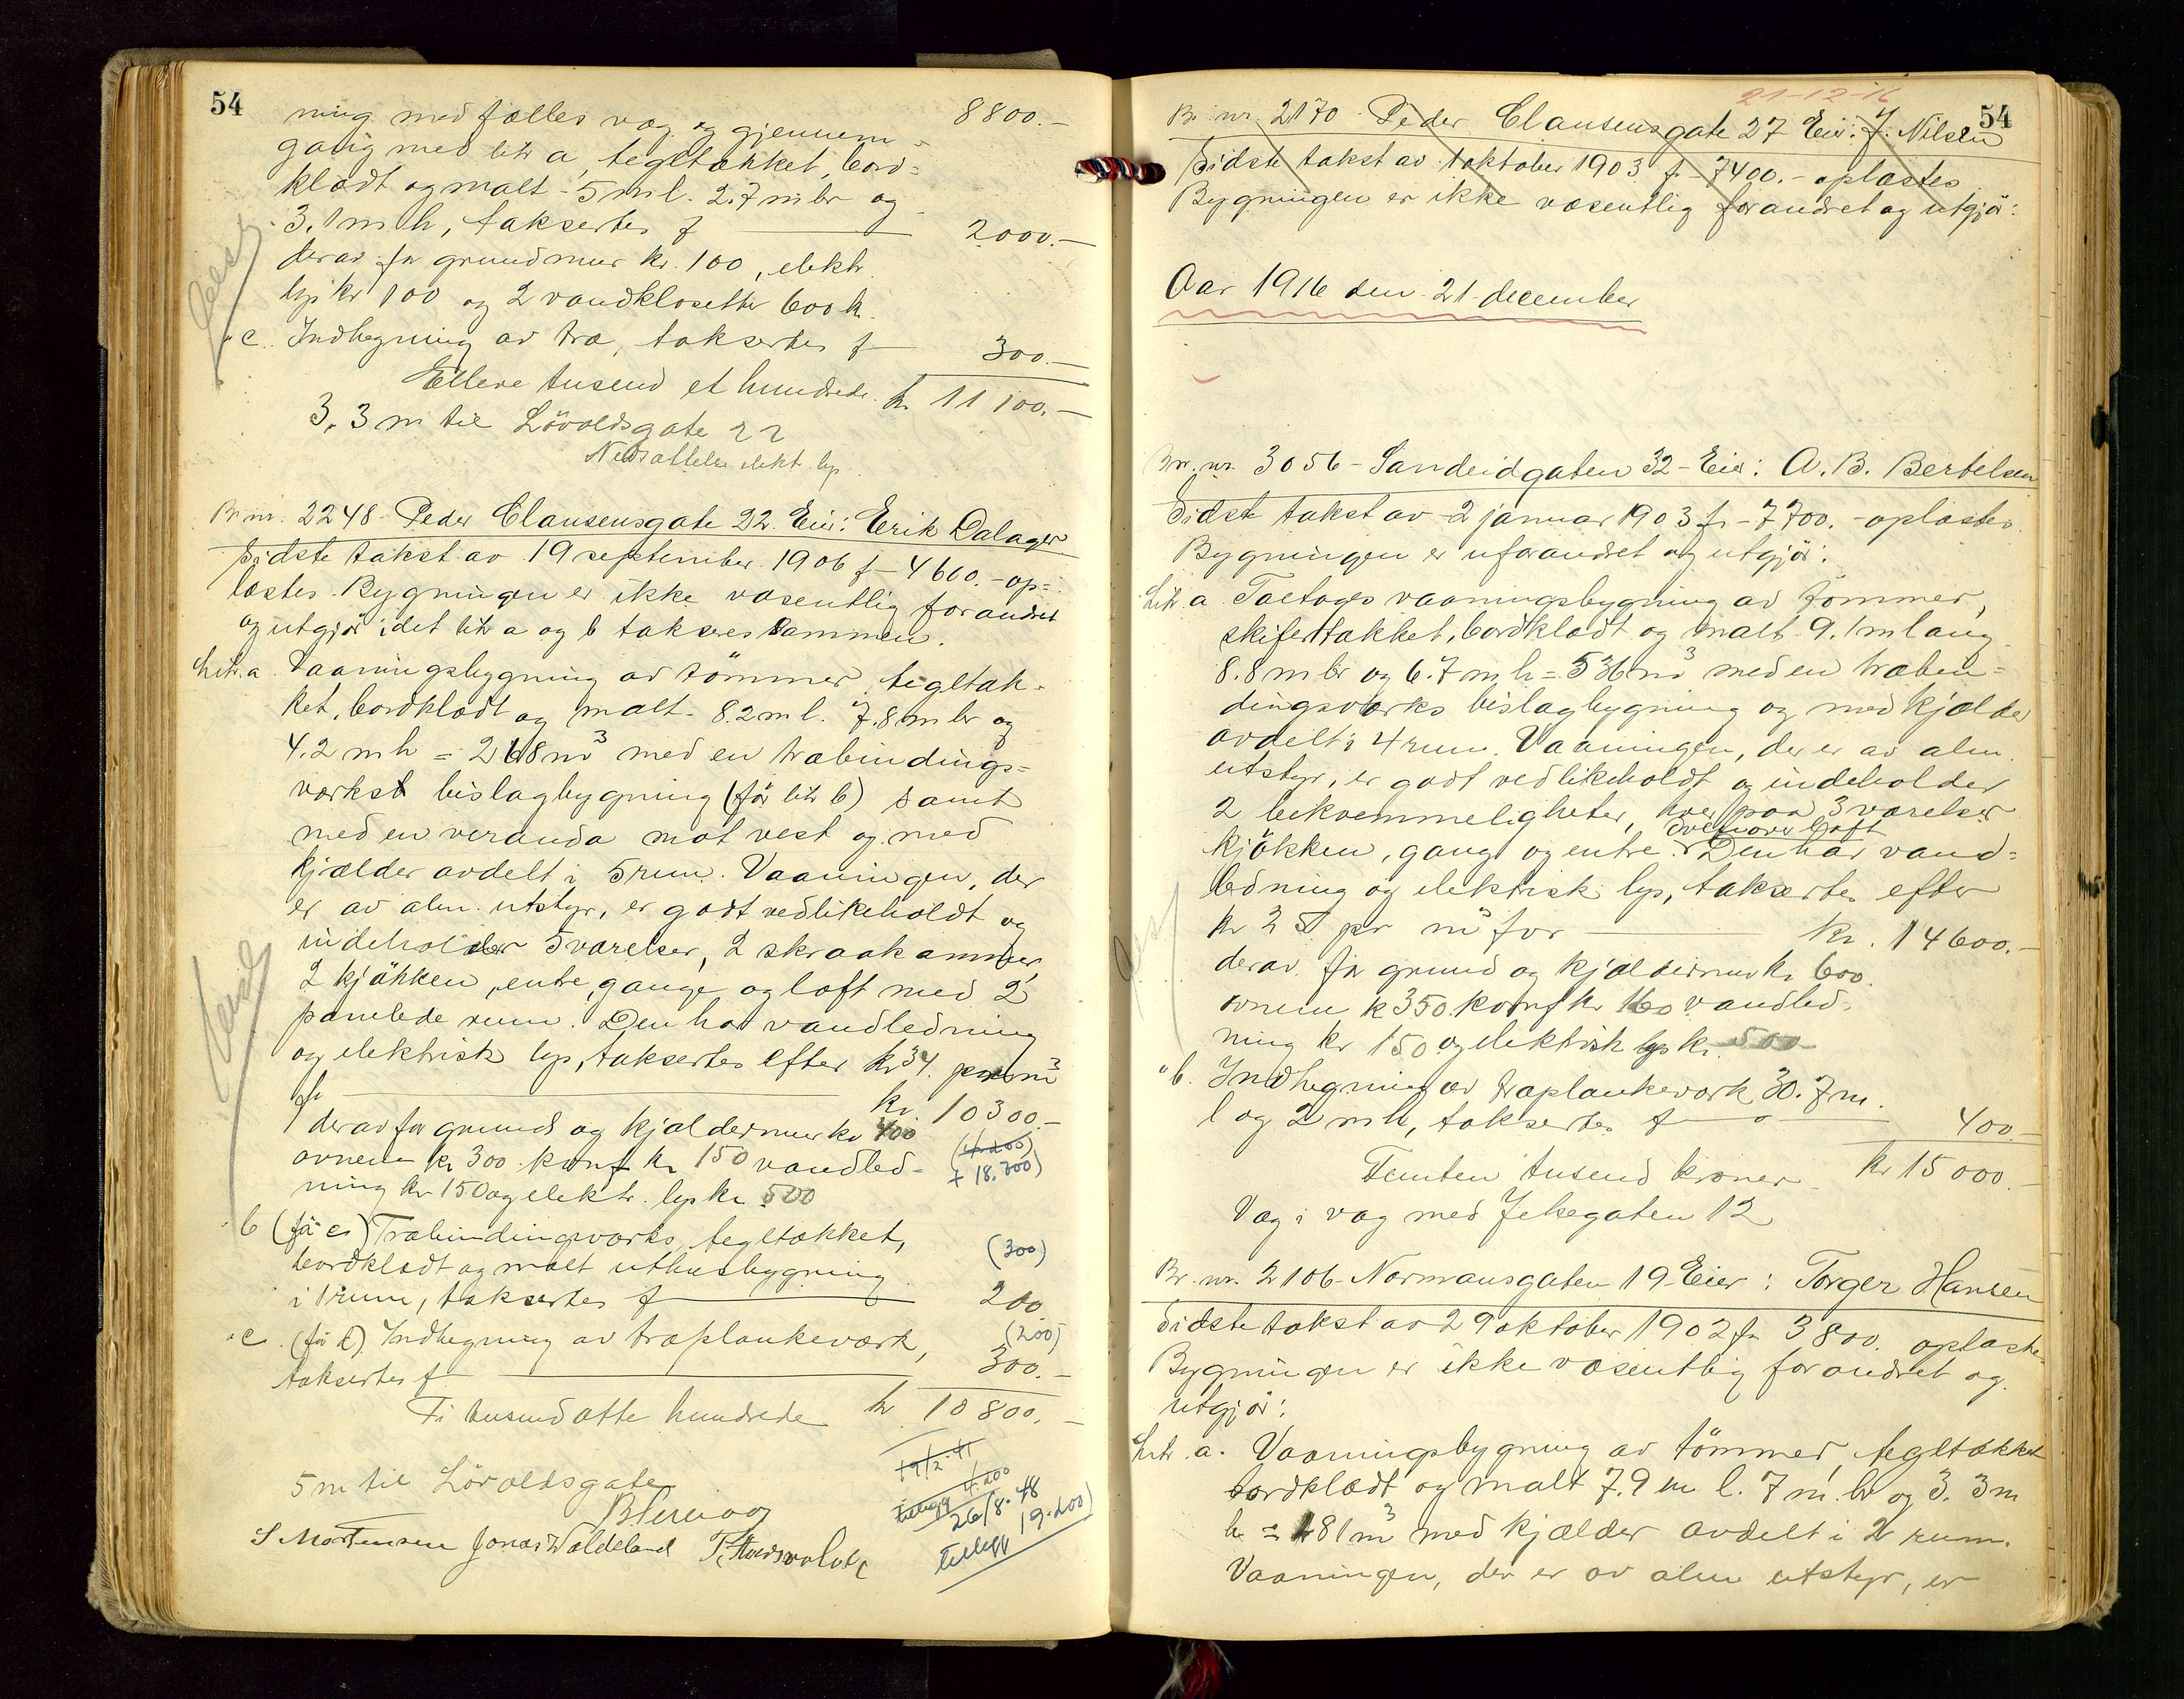 54
ning med fælles væg og gjennem= 8800.-
gang med litr a, tegltækket, bord=
klædt og malt - 5 m l. 2.7 m br og
3.1 m h, taksertes f 2000.-
derav for grundmur kr. 100, elektr.
lys kr 100 og 2 vandklosetter 600 kr.
" c. Indhegning av træ, taksertes f 300.-
Elleve tusend et hundrede. kr 11100.-
3.3 m til Lövoldsgate 22
Nedsættelse elekt. lys
Br nr. 2248 Peder Clausensgate 22. Eier: Erik Dalager
Sidste takst av 19 september 1906 f - 4600.- op=
læstes. Bygningen er ikke væsentlig forandret
og utgjör idet litr a og b takseres sammen.
Litr. a Vaaningsbygning av tömmer, tegltæk=
ket, bordklædt og malt - 8.2 m l. 7.8 m br og
4.2 m h = 268 m3 med en træbindings=
verks bislagbygning (för litr b) samt
med en veranda mot vest og med
kjælder avdelt i 5 rum. Vaaningen, der
er av alm. utstyr, er godt vedlikeholdt og
indeholder 5 værelser, 2 skraakammer,
2 kjökken, entre, gange og loft med 2
panelede rum. Den har vandledning
og elektrisk lys, taksertes efter kr 34. pr m3
f kr. 10300.-
derav for grund og kjældermur kr 400
ovnene kr 300 komf kr 150 vandled- (+ 18.300)
ning kr 150 og elektr. lys kr 500
" b (för c) Træbindingsværks, tegltækket, (300)
bordklædt og malt uthusbygning
i 1 rum, taksertes f 200
" c. (för d) Indhegning av træplankeværk, (200)
taksertes f 300.-
Ti tusend otte hundrede kr 10800.-
5 m til Lövoldsgate
19/2-41
tillegg 4.200
26/8-48
tillegg 19.200)
S Mortensen Jonas Waldeland
21-12-16
54
Br. nr. 2170 Peder Clausensgate 27 Eier: J. Nilsen
Sidste takst av 1 oktober 1903 f - 7400.- oplæstes
Bygningen er ikke væsentlig forandret og utgjör:
Aar 1916 den 21 december
Br. nr. 3056 - Sandeidgaten 32 - Eier: A. B. Bertelsen
Sidste takst av 2 januar 1903 fr - 7700.- oplæstes.
Bygningen er uforandret og utgjör:
Litr. a Toetages vaaningsbygning av tömmer,
skifertækket, bordklædt og malt - 9.1 m lang
8.8 m br og 6.7 m h = 536 m3 med en træbin=
dingsverks bislagbygning og med kjælder
avdelt i 4 rum. Vaaningen, der er av alm.
utstyr, er godt vedlikeholdt og indeholder
2 bekvemmeligheter, hver paa 3 værelser
kjökken, gang og entre. Derover loft Den har vand=
ledning og elektrisk lys, taksertes efter
kr 25 pr m3 for kr. 14600.-
derav for grund og kjældermur kr 600
ovnene kr 350. komf kr 160 vandled-
ning kr 150 og elektrisk lys kr. 500
" b. Indhegning av træplankeverk 30.7 m.
l og 2 m h, taksertes f 400.-
Femten tusend kroner. kr 15000.-
Væg i væg med Jekegaten 12
Br. nr. 2106 - Normansgaten 19 - Eier: Torger Hansen
Sidste takst av 29 oktober 1902 fr 3800. oplæstes
Bygningen er ikke væsentlig forandret og
utgjör:
Litr. a. Vaaningsbygning av tömmer, tegltækket
bordklædt og malt 7.9 m l. 7 m. br og 3.3 m
h = 181 m3 med kjælder avdelt i 2 rum.
Vaaningen, der er av alm utstyr, er